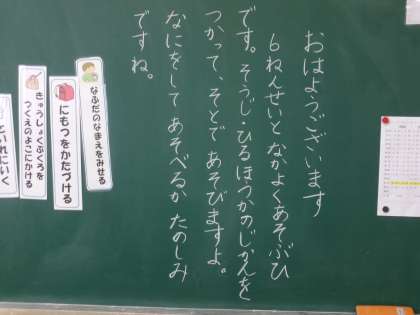 おはようございます
6ねんせいと なかよくあそぶひ
です。そうじ・ひるほうかのじかんを
つかって、そとで あそびますよ。
なにをして あそべるか たのしみ
ですね。
なふだのなまえをみせる
にもつをかたづける
きゅうしょくぶくろを
つくえのよこにかける
といれにいく